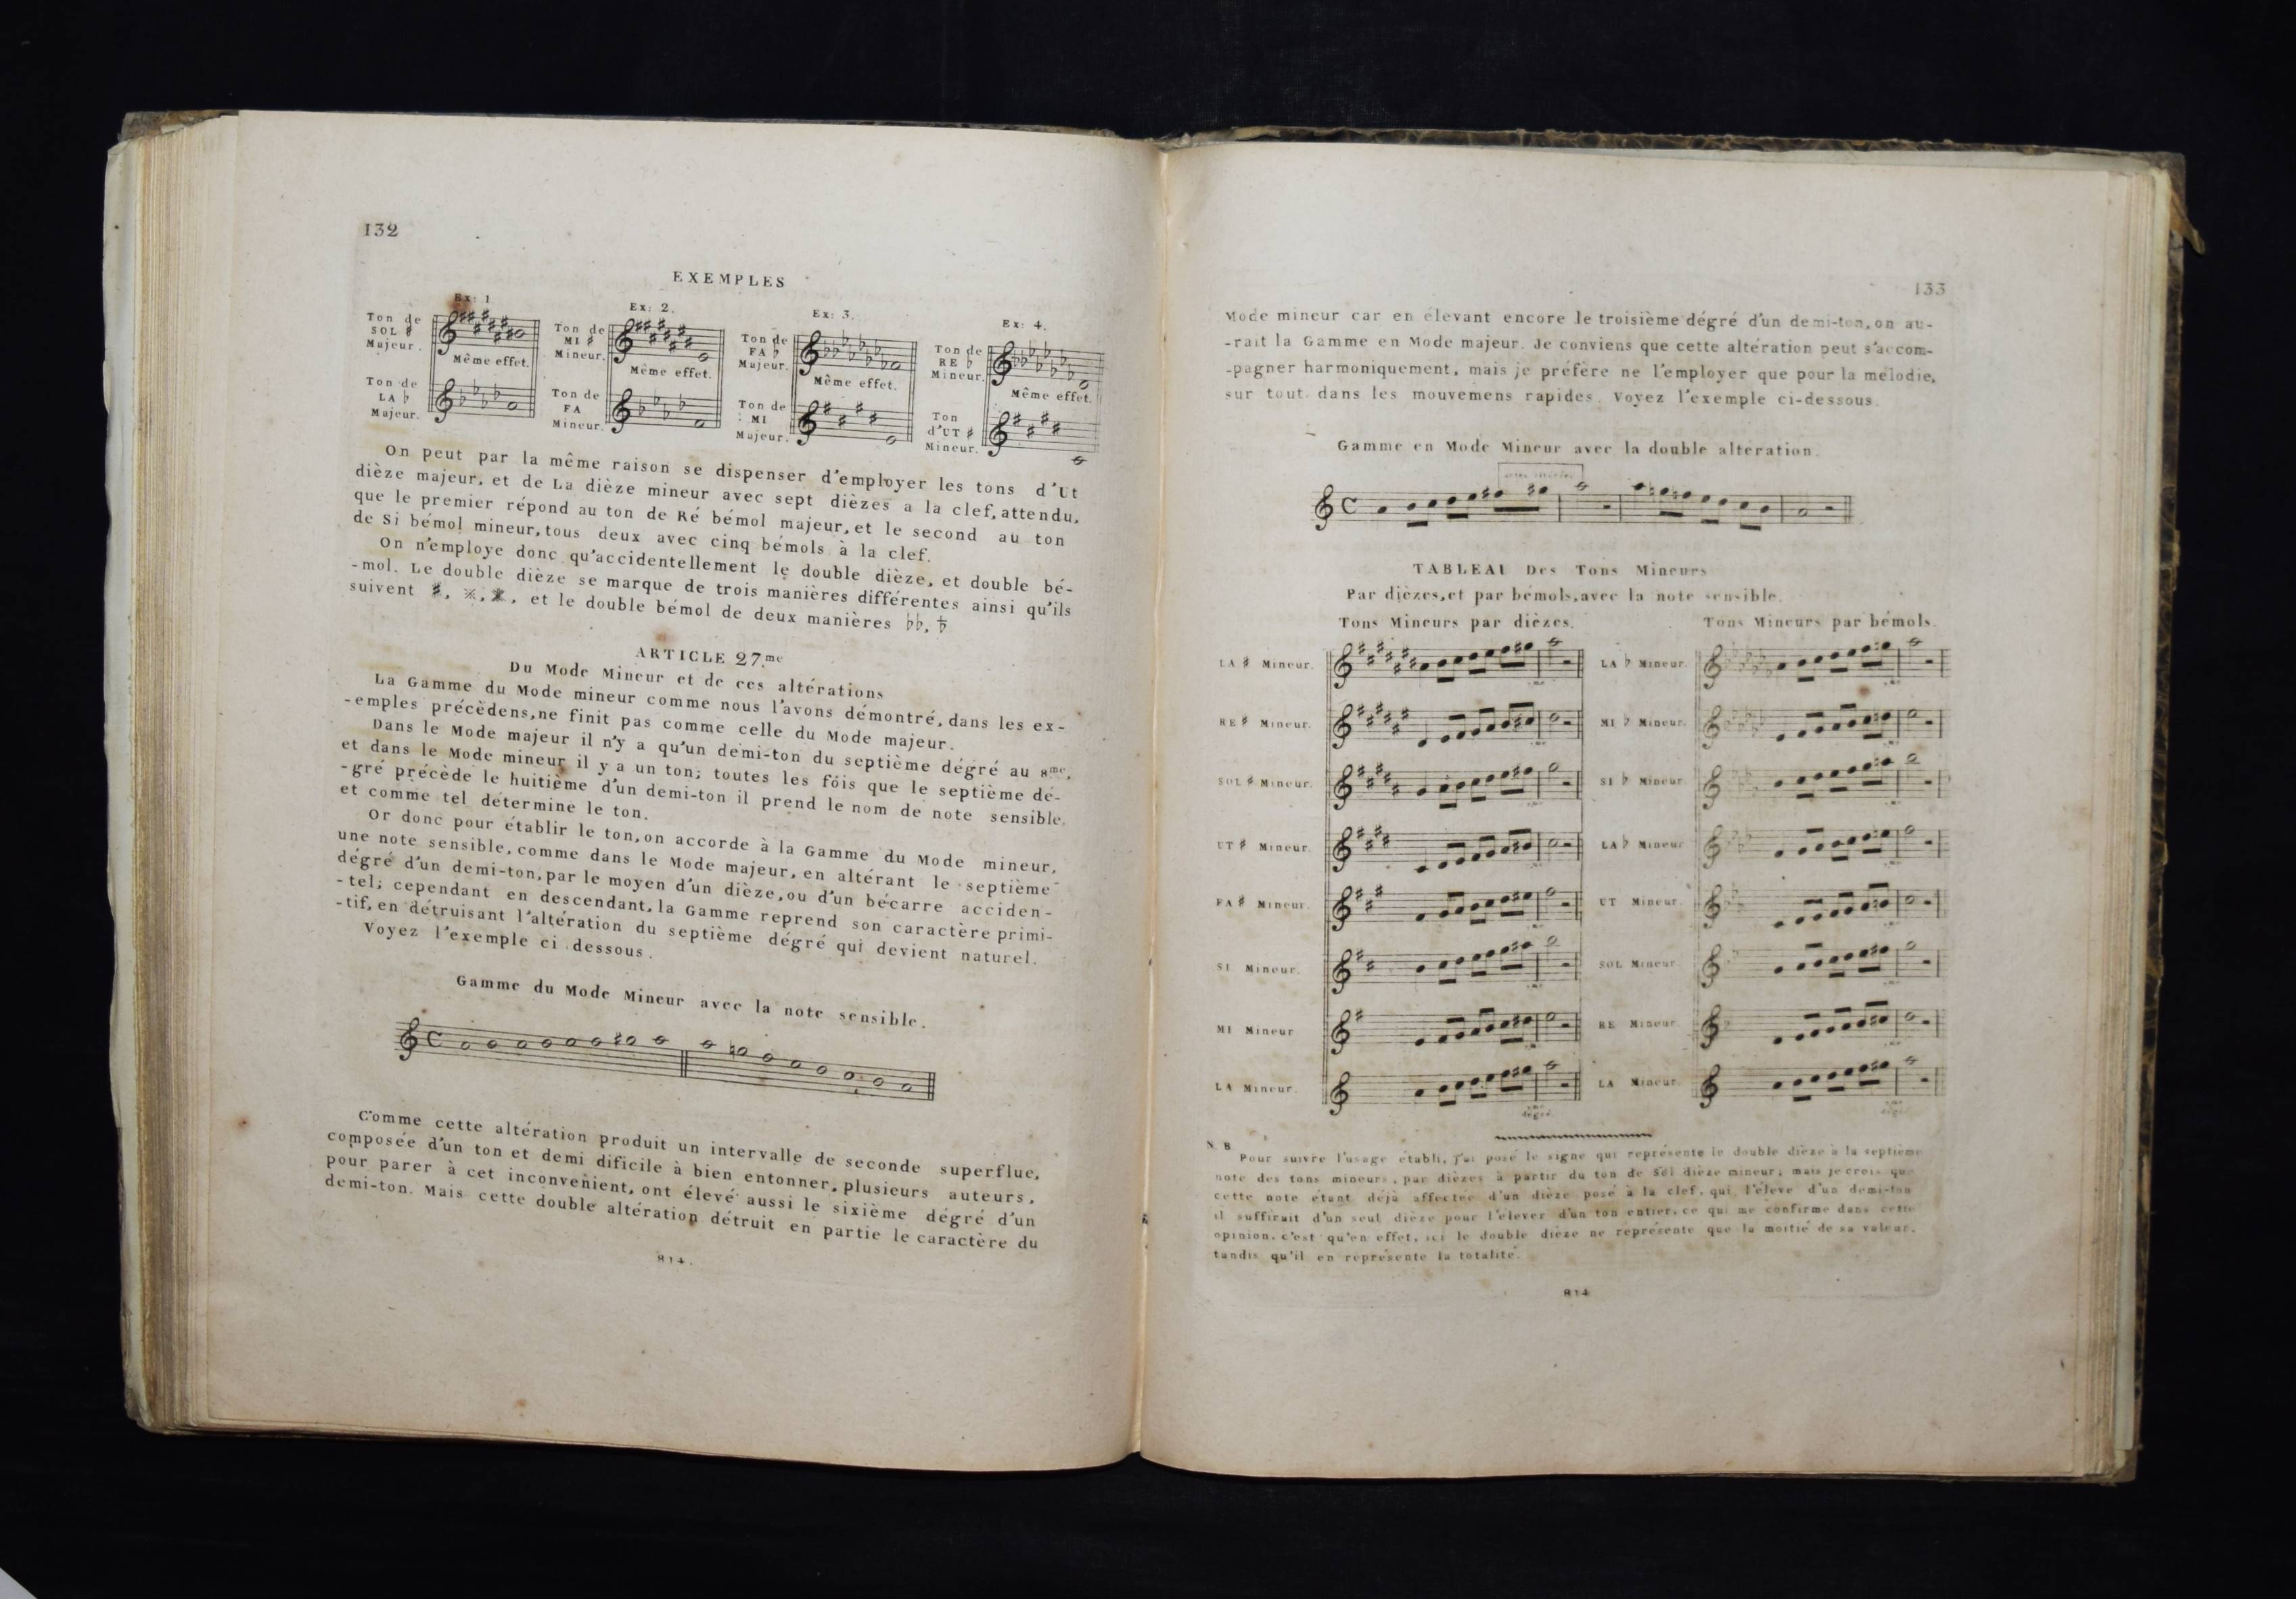 132
EXEMPLES
Ex: 1
Ton de
SOL ♯
Majeur.
Même effet.
Ton de
LA ♭
Majeur.
Ex: 2.
Ton de
MI ♯
Mineur.
Même effet.
Ton de
FA
Mineur.
Ex: 3.
Ton de
FA ♭
Majeur.
Même effet.
Ton de
MI
Majeur.
Ex: 4.
Ton de
RE ♭
Mineur.
Même effet.
Ton
d'UT ♯
Mineur.
On peut par la même raison se dispenser d'employer les tons d'Ut
dièze majeur, et de La dièze mineur avec sept dièzes a la clef, attendu,
que le premier répond au ton de Ré bémol majeur, et le second au ton
de Si bémol mineur, tous deux avec cinq bémols à la clef.
On n'employe donc qu'accidentellement le double dièze, et double bé-
-mol. Le double dièze se marque de trois manières différentes ainsi qu'ils
suivent ♯, ※, , et le double bémol de deux manières ♭♭,
ARTICLE 27.me
Du Mode Mineur et de ces altérations
La Gamme du Mode mineur comme nous l'avons démontré, dans les ex-
-emples précèdens, ne finit pas comme celle du Mode majeur.
Dans le Mode majeur il n'y a qu'un demi-ton du septième dégré au 8me,
et dans le Mode mineur il y a un ton; toutes les fois que le septième dé-
-gré précède le huitième d'un demi-ton il prend le nom de note sensible,
et comme tel détermine le ton.
Or donc pour établir le ton, on accorde à la Gamme du Mode mineur,
une note sensible, comme dans le Mode majeur, en altérant le septième
dégré d'un demi-ton, par le moyen d'un dièze, ou d'un bécarre acciden-
-tel; cependant en descendant, la Gamme reprend son caractère primi-
-tif, en détruisant l'altération du septième dégré qui devient naturel.
Voyez l'exemple ci dessous.
Gamme du Mode Mineur avec la note sensible.
Comme cette altération produit un intervalle de seconde superflue,
composée d'un ton et demi dificile à bien entonner, plusieurs auteurs,
pour parer à cet inconvenient, ont élevé aussi le sixième dégré d'un
demi-ton. Mais cette double altération détruit en partie le caractère du
814.
133
Mode mineur car en élevant encore le troisième dégré d'un demi-ton, on au-
-rait la Gamme en Mode majeur. Je conviens que cette altération peut s'accom-
-pagner harmoniquement, mais je préfère ne l'employer que pour la mélodie,
sur tout dans les mouvemens rapides. Voyez l'exemple ci-dessous.
Gamme en Mode Mineur avec la double altération.
TABLEAU Des Tons Mineurs
Par dièzes, et par bémols, avec la note sensible.
Tons Mineurs par dièzes.
Tons Mineurs par bémols.
LA ♯ Mineur.
LA ♭ Mineur.
RE ♯ Mineur.
MI ♭ Mineur.
SOL ♯ Mineur.
SI ♭ Mineur
UT ♯ Mineur.
LA ♭ Mineur
FA ♯ Mineur.
UT Mineur.
SI Mineur.
SOL Mineur.
MI Mineur
RE Mineur.
LA Mineur.
LA Mineur.
dégré
N. B.
Pour suivre l'usage établi, j'ai posé le signe qui représente le double dièze à la septième
note des tons mineurs, par dièzes à partir du ton de Sol dièze mineur; mais je crois que
cette note étant déjà affectée d'un dièze posé à la clef, qui l'élève d'un demi-ton
il suffirait d'un seul dièze pour l'élever d'un ton entier, ce qui me confirme dans cette
opinion, c'est qu'en effet, ici le double dièze ne représente que la moitié de sa valeur,
tandis qu'il en représente la totalité.
814